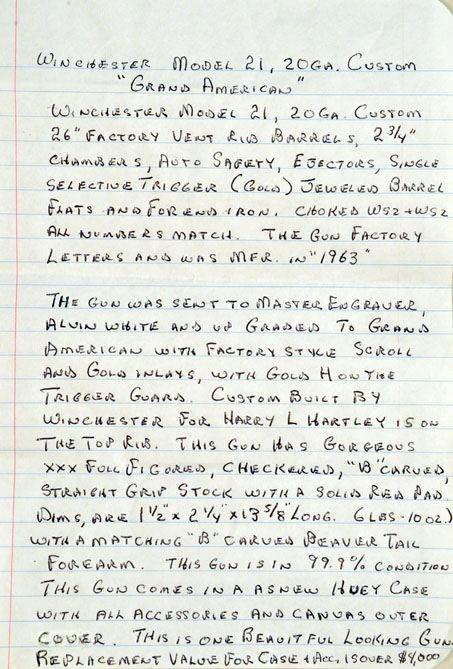 WINCHESTER MODEL 21, 20GA. CUSTOM
"GRAND AMERICAN"
WINCHESTER MODEL 21, 20GA. CUSTOM
26" FACTORY VENT RIB BARRELS, 2 3/4"
CHAMBERS, AUTO SAFETY, EJECTORS, SINGLE
SELECTIVE TRIGGER (GOLD) JEWELED BARREL
FLATS AND FOREND IRON. CHOKED WS2+WS2
ALL NUMBERS MATCH. THE GUN FACTORY
LETTERS AND WAS MFR. IN "1963"
THE GUN WAS SENT TO MASTER ENGRAVER,
ALVIN WHITE AND UP GRADED TO GRAND
AMERICAN WITH FACTORY STYLE SCROLL
AND GOLD INLAYS, WITH GOLD H ON THE
TRIGGER GUARD. CUSTOM BUILT BY
WINCHESTER FOR HARRY L HARTLEY IS ON
THE TOP RIB. THIS GUN HAS GORGEOUS
XXX FULL FIGURED, CHECKERED, "B" CARVED,
STRAIGHT GRIP STOCK WITH A SOLID RED PAD.
DIMS, ARE 1 1/2" x 2 1/4" x 13 5/8" LONG. 6 LBS-10 OZ.)
WITH A MATCHING "B" CARVED BEAVER TAIL
FOREARM. THIS GUN IS IN 99.9% CONDITION
THIS GUN COMES IN A AS NEW HUEY CASE
WITH ALL ACCESSORIES AND CANVAS OUTER
COVER. THIS IS ONE BEAUITFUL LOOKING GUN.
REPLACEMENT VALUE FOR CASE + ACC, IS OVER $4,000